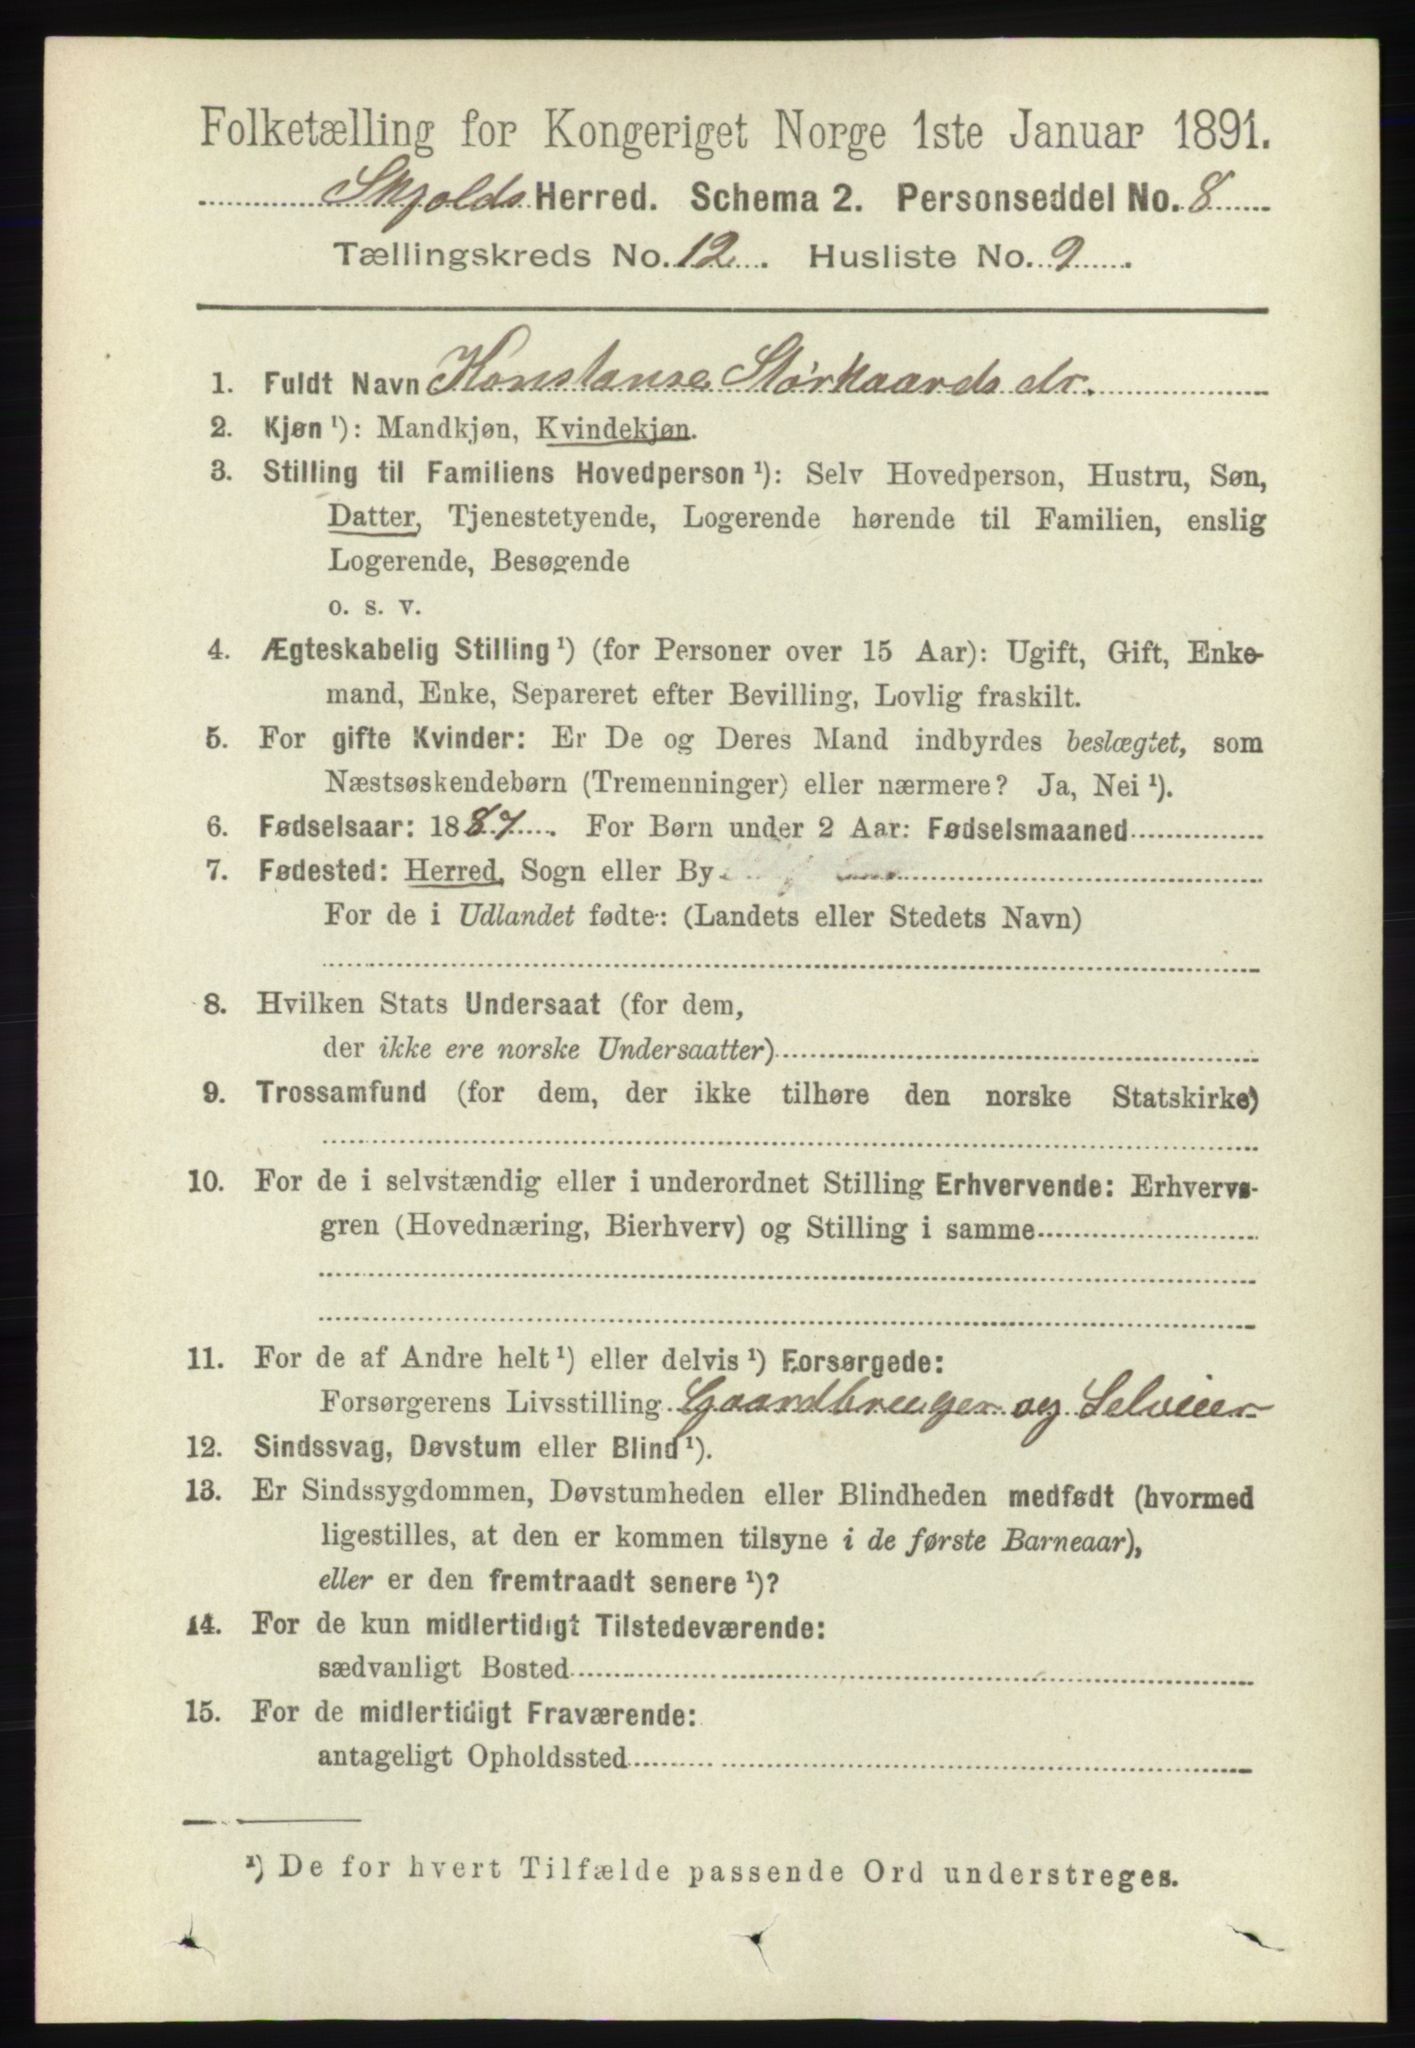 Folketælling for Kongeriget Norge 1ste Januar 1891.
Skjolds Herred. Schema 2. Personseddel No. 8
Tællingskreds No. 12. Husliste No. 9
1. Fuldt Navn Konstanse Størkaards dr.
2. Kjøn ¹): Mandkjøn, Kvindekjøn.
3. Stilling til Familiens Hovedperson ¹): Selv Hovedperson, Hustru, Søn,
Datter, Tjenestetyende, Logerende hørende til Familien, enslig
Logerende, Besøgende
o. s. v.
4. Ægteskabelig Stilling ¹) (for Personer over 15 Aar): Ugift, Gift, Enke-
mand, Enke, Separeret efter Bevilling, Lovlig fraskilt.
5. For gifte Kvinder: Er De og Deres Mand indbyrdes beslægtet, som
Næstsøskendebørn (Tremenninger) eller nærmere? Ja, Nei ¹).
6. Fødselsaar: 1887. For Børn under 2 Aar: Fødselsmaaned
7. Fødested: Herred, Sogn eller By
For de i Udlandet fødte: (Landets eller Stedets Navn)
8. Hvilken Stats Undersaat (for dem,
der ikke ere norske Undersaatter)
9. Trossamfund (for dem, der ikke tilhøre den norske Statskirke)
10. For de i selvstændig eller i underordnet Stilling Erhvervende: Erhvervs-
gren (Hovednæring, Bierhverv) og Stilling i samme
11. For de af Andre helt ¹) eller delvis ¹) Forsørgede:
Forsørgerens Livsstilling Gaardbruger og Selveier
12. Sindssvag, Døvstum eller Blind ¹).
13. Er Sindssygdommen, Døvstumheden eller Blindheden medfødt (hvormed
ligestilles, at den er kommen tilsyne i de første Barneaar),
eller er den fremtraadt senere ¹)?
14. For de kun midlertidigt Tilstedeværende:
sædvanligt Bosted
15. For de midlertidigt Fraværende:
antageligt Opholdssted
¹) De for hvert Tilfælde passende Ord understreges.